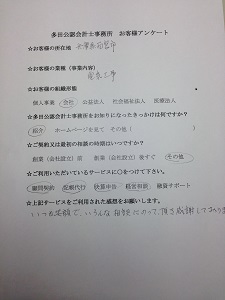 多田公認会計士事務所　お客様アンケート
☆お客様の所在地
☆お客様の業種（事業内容）
電気工事
☆お客様の組織形態
個人事業　会社　公益法人　社会福祉法人　医療法人
☆多田公認会計士事務所をお知りになったきっかけは何ですか？
紹介　ホームページを見て　その他（　　　）
☆ご契約又は最初の相談の時期はいつですか？
創業（会社設立）前　創業（会社設立）後すぐ　その他
☆ご利用いただいているサービスに○をつけて下さい。
顧問契約　記帳代行　決算申告　経営相談　融資サポート
☆上記サービスをご利用された感想をお願いします。
いつも笑顔で、いろんな相談にのって頂き感謝しております